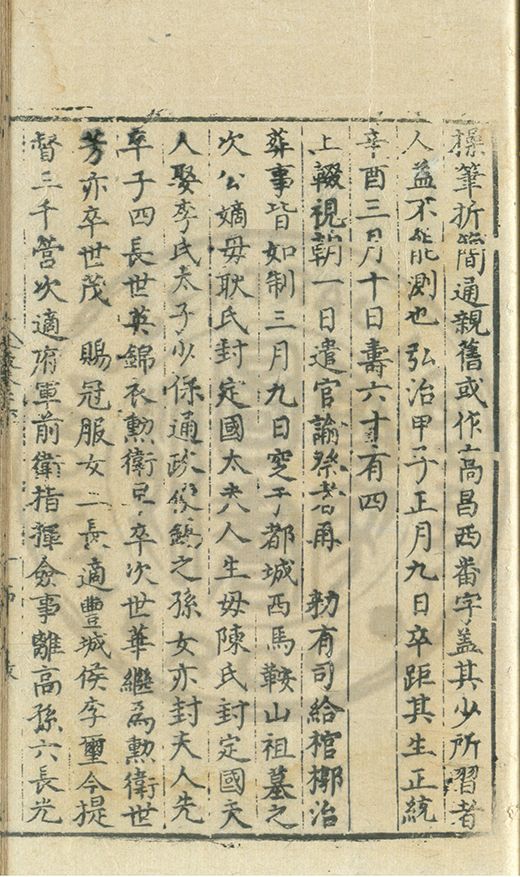 操筆折簡通親舊或作高昌西番字蓋其少所習者
人益不能測也 弘治甲子正月九日卒距其生正統
辛酉三月十日壽六十有四
上輟視朝一日遣官諭祭者再 勑有司給棺槨治
葬事皆如制三月九日窆于都城西馬鞍山祖墓之
次公嫡母耿氏封定國太夫人生母陳氏封定國夫
人娶李氏太子少保通政俊鎬之孫女亦封夫人先
卒子四長世英錦衣勲衛早卒次世華繼為勲衛世
芳亦卒世茂 賜冠服女二長適豐城侯李璽今提
督三千營次適府軍前衛指揮僉事離高孫六長光